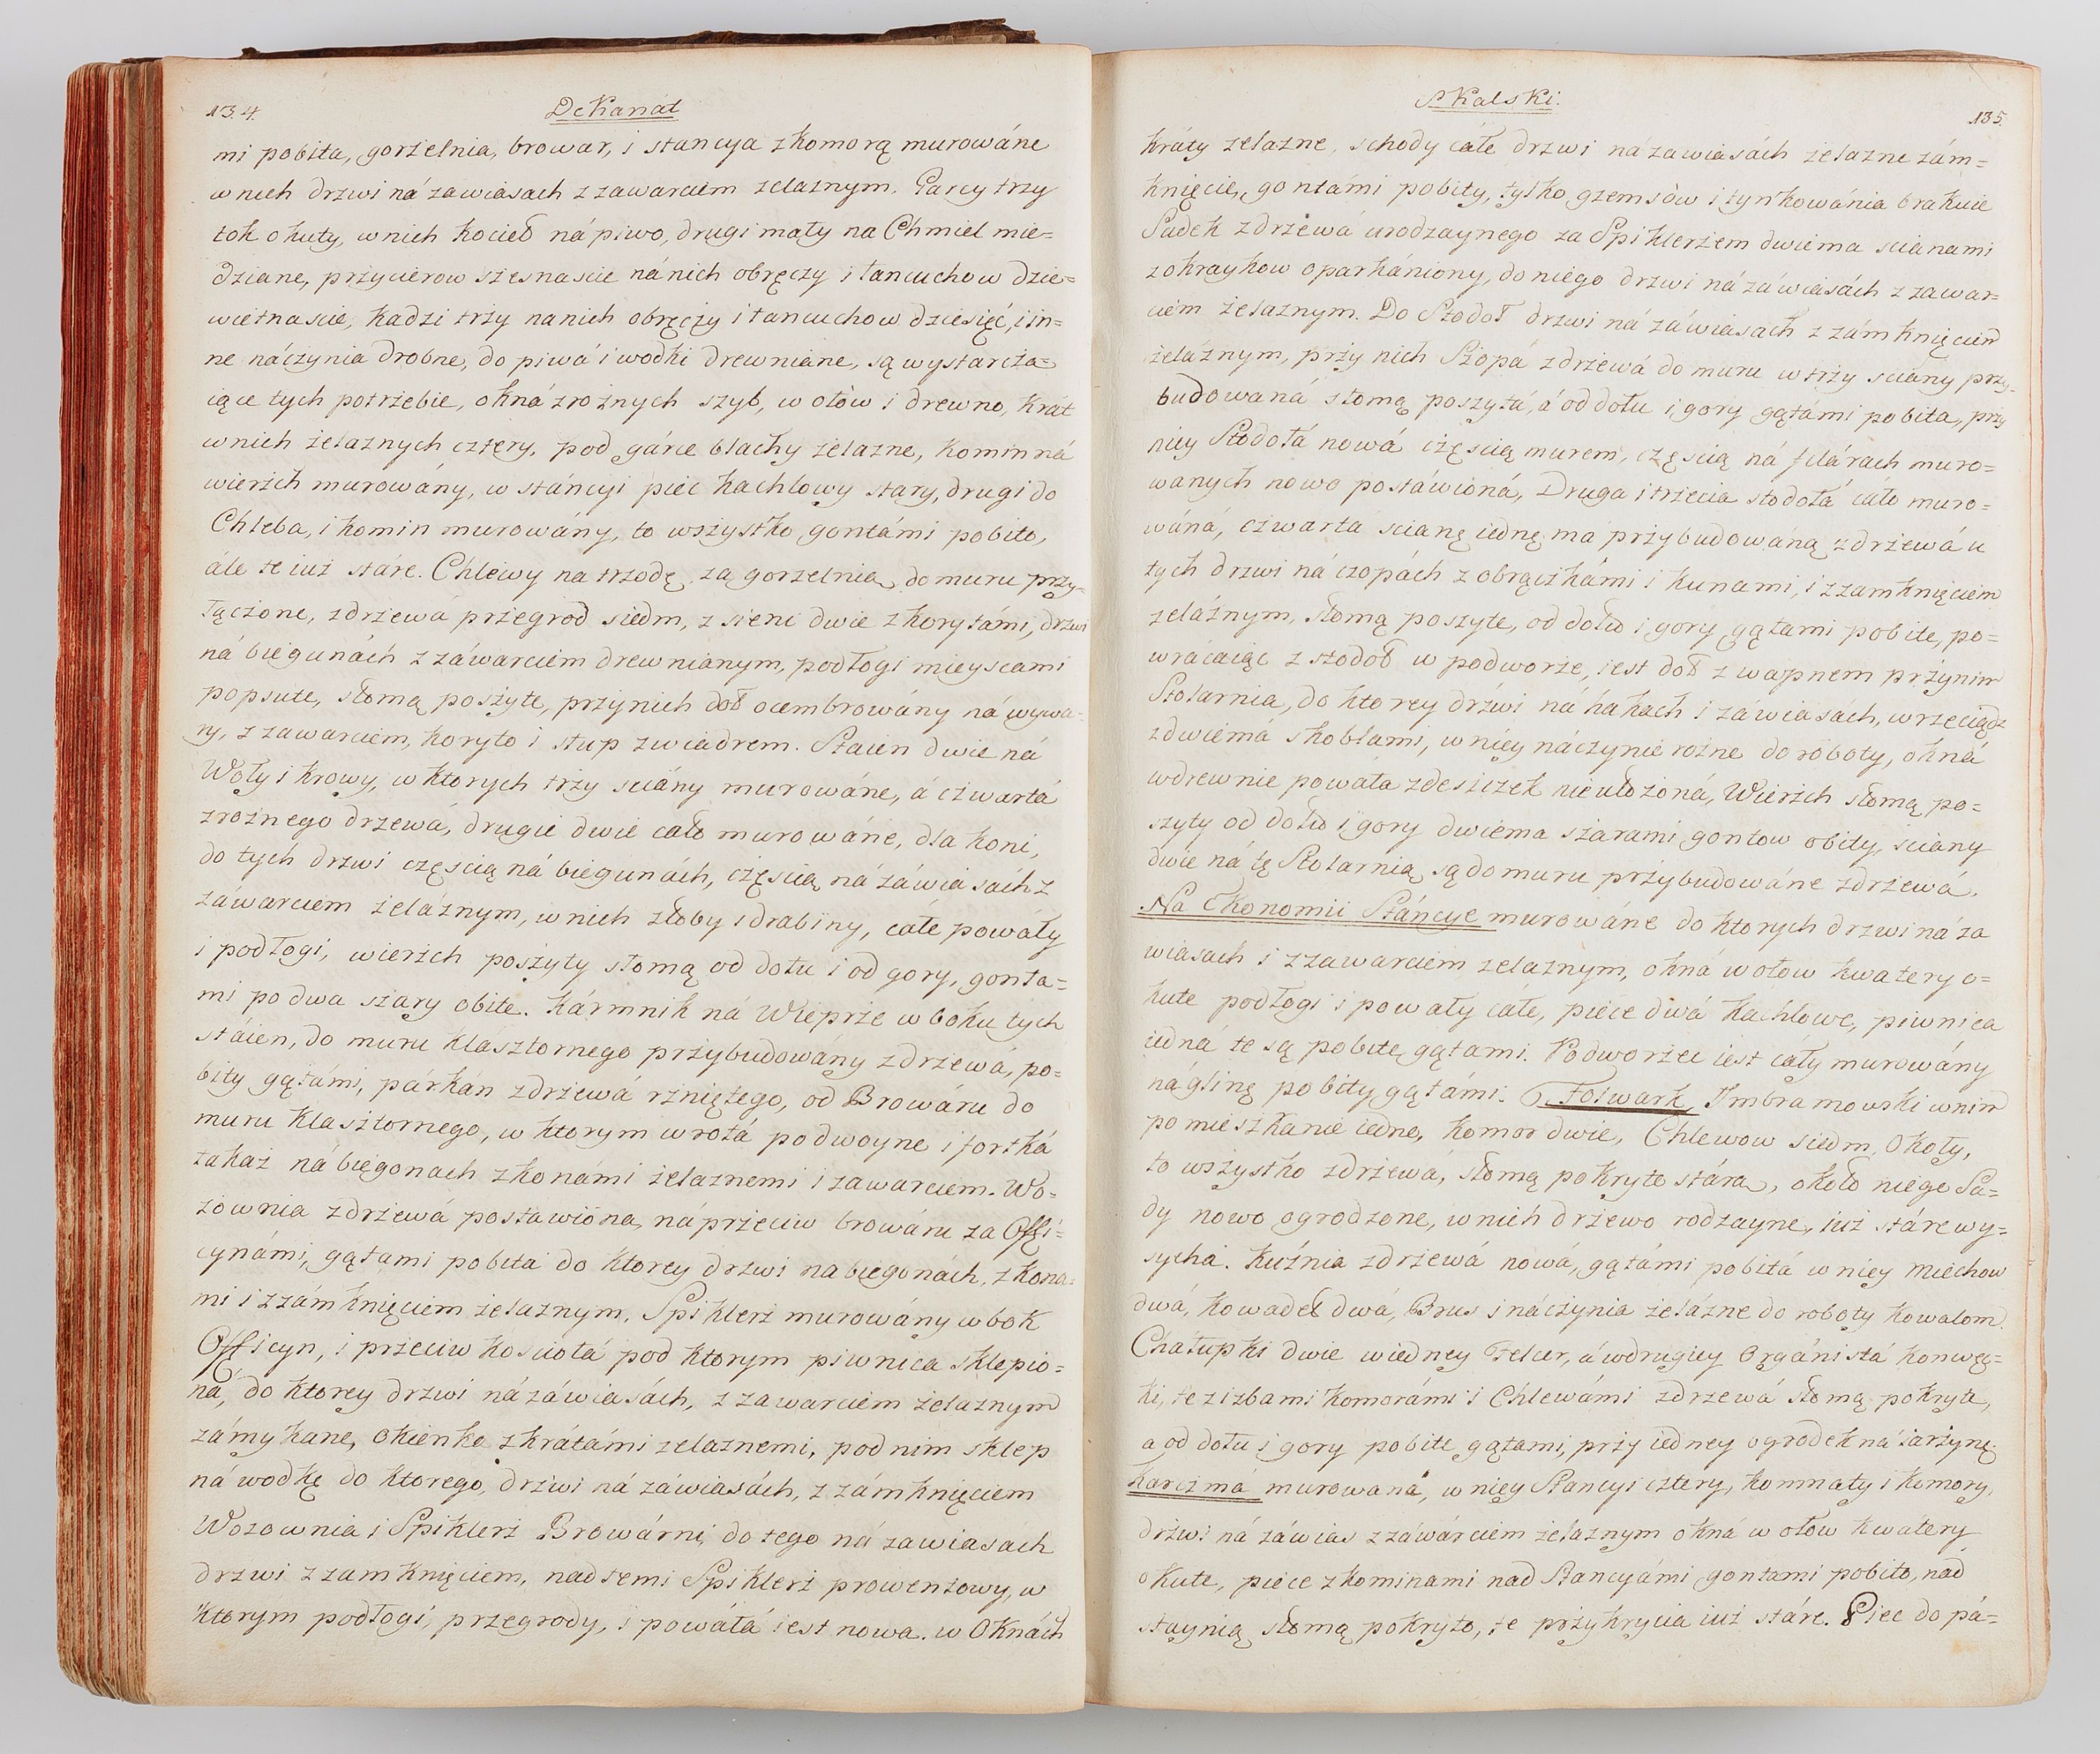 134.
Dekanat
mi pobita, gorzelnia, browar, i stancya z komorą murowáne
w nich drzwi ná zawiasach z zawarciem zelaznym. Parcy trzy
tok okuty, w nich kocieł ná piwo, drugi mały na Chmiel mie=
dziane, przycierow szesnascie ná nich obręczy i łancuchow dzie=
więtnascie, kadzi trzy na nich obręczy i łancuchow dziesięć, i in=
ne náczynia drobne, do piwá i wodki drewniane, są wystarcza=
iące tych potrzebie, okná z roznych szyb, w ołow i drewno, krat
w nich żelaznych cztery, pod gárce blachy żelazne, komin ná
wierzch murowány, w stáncyi piec kachlowy stary, drugi do
Chleba, i komin murowány, to wszystko gontámi pobito,
ále te iuż stáre. Chlewy na trzodę za gorzelnią do muru przy=
łączone, z drzewá przegrod siedm, z sieni dwie z korytámi, drzwi
ná biegunách z záwarciem drewnianym, podłogi mieyscami
popsute, słomą poszyte, przy nich doł ocembrowány ná wywa=
ry, z zawarciem, koryto i słup z wiadrem. Staien dwie ná
Woły i krowy, w ktorych trzy sciány murowáne, á czwartá
z rożnego drzewá, drugie dwie cało murowáne, dla koni,
do tych drzwi częscią ná biegunách, częscią ná záwiasách z
záwarciem żeláznym, w nich złoby i drabiny, całe powały
i podłogi, wierzch poszyty słomą od dołu i od gory, gonta=
mi po dwa szary obite. Kármnik ná Wieprze w boku tych
stáien, do muru klasztornego przybudowány z drzewá, po=
bity gątámi, párkán z drzewá rzniętego, od Browáru do
muru Klasztornego, w ktorym wrotá podwoyne i fortká
takaż ná biegonach z konámi żelaznemi i zawarciem. Wo=
zownia z drzewá postawiona, náprzeciw browáru za Offi=
cynámi, gątami pobita do ktorey drzwi na biegonách, z kona=
mi i z zámknięciem żelaznym. Spiklerz murowány w bok
Officyn, i przeciw kosciołá pod ktorym piwnica sklepio=
ná, do ktorey drzwi ná záwiasách, z zawarciem żelaznym
zámykane, okienko z krátámi zelaznemi, pod nim sklep
ná wodkę do ktorego, drzwi ná záwiasách, z zámknięciem
Wozownia i Spiklerz Browárni, do tego ná zawiasach
drzwi z zamknięciem, nad temi Spiklerz prowentowy, w
ktorym podłogi, przegrody, i powáłá iest nowa. w Oknách
Skalski.
135.
kráty zelazne, schody całe drzwi ná zawiasách żelazne zám=
knięcie, gontámi pobity, tylko gzemsow i tynkowánia brakuie
Sadek z drzewá urodzaynego za Spiklerzem dwiema scianami
z okraykow oparkániony, do niego drzwi ná záwiasách z zawar=
ciem żelaznym. Do Stodoł drzwi ná záwiasach z zámknięciem
żeláznym, przy nich Szopá z drzewá do muru w trzy sciany przy=
budowaná słomą poszytá, á od dołu i gory gątámi pobita, przy
niey Stodołá nowá częscią murem, częscią ná filárach muro=
wanych nowo postáwioná, Druga i trzecia stodołá cáło muro=
wáná, czwarta scianę iednę ma przybudowáną z drzewá u
tych drzwi ná czopách z obrączkámi i kunami, i z zamknięciem
zeláznym, słomą poszyte, od dołu i gory gątami pobite, po=
wrácaiąc z stodoł w podworze, iest doł z wapnem przy nim
Stolarnia, do ktorey drzwi ná hakach i záwiasách, wrzeciądz
z dwiemá skoblami, w niey náczynie rożne do roboty, okná
w drewnie powáła z desiczek nieułożoná, Wierzch słomą po=
szyty od dołu i gory dwiema szarami gontow obity, sciany
dwie ná tę Stolarnią są do muru przybudowáne z drzewá.
Na Ekonomii Stáncye murowáne do ktorych drzwi ná za
wiasach i z zawarciem zelaznym, okná w ołow kwatery o=
kute podłogi i powały cáłe, piece dwá kachlowe, piwnica
iedná te są pobite gątami. Podworzec iest cały murowány
ná glinę pobity gątámi. Folwark Imbramowski w nim
pomieszkanie iedno, komor dwie, Chlewow siedm, Okoły,
to wszystko z drzewá, słomą pokryte stárą, około niego Sa=
dy nowo ogrodzone, w nich drzewo rodzayne, iuż stáre wy=
sychá. Kuźnia z drzewá nowá, gątámi pobitá w niey miechow
dwá, kowadeł dwá, Brus i náczynia żelázne do roboty kowalom.
Chałupki dwie w iedney Felcer, á w drugiey Orgánistá konwęc=
ki, te z izbami komorámi i Chlewámi z drzewá słomą pokryte,
a od dołu i gory pobite gątami, przy iedney ogrodek ná iarzynę.
Karczmá murowaná, w niey Stancyi cztery, kommaty i komory,
drzwi ná záwias z záwárciem żelaznym okná w ołow kwatery
okute, piece z kominami nad Stancyámi gontami pobito, nad
staynią słomą pokryto, te przykrycia iuż stáre. Piec do pá=